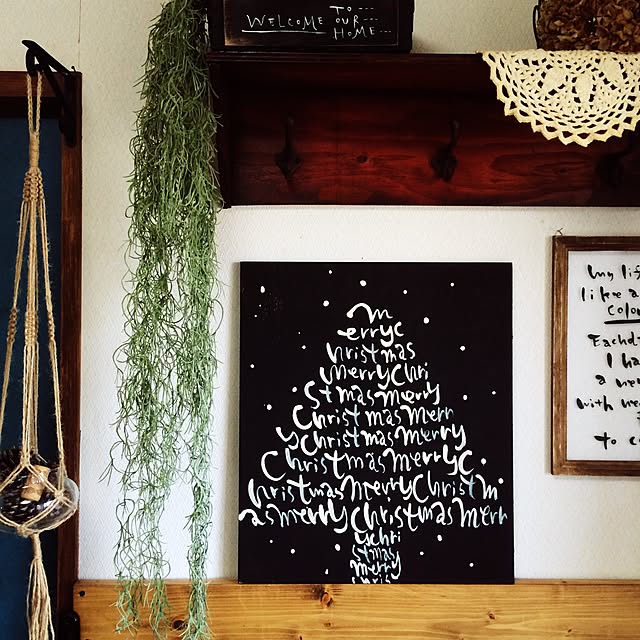 WELCOME TO---
OUR---
HOME---
m
erryc
hristmas
merrychri
stmasmerry
Christmasmerr
ychristmasmerry
Christmasmerryc
hristmasmerryChristm
asmerryChristmasmerr
ychri
stmas
merry
chris
My lif
like a
Colo
Eachd
I ha
a ne
with ne
to c